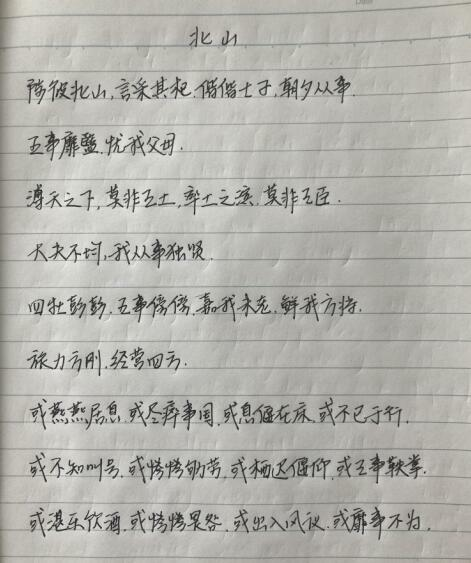 北山
陟彼北山，言采其杞．偕偕士子，朝夕从事．
王事靡盬．忧我父母．
溥天之下，莫非王土，率土之滨，莫非王臣．
大夫不均，我从事独贤．
四牡彭彭，王事傍傍．嘉我未老，鲜我方将．
旅力方刚，经营四方．
或燕燕居息，或尽瘁事国，或息偃在床，或不已于行．
或不知叫号，或惨惨劬劳，或栖迟偃仰，或王事鞅掌．
或湛乐饮酒，或惨惨畏咎，或出入风议，或靡事不为．